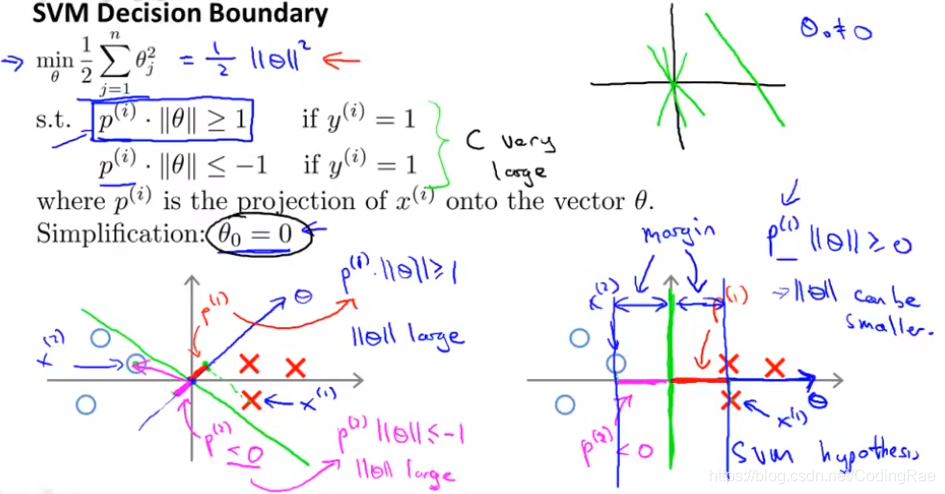 SVM Decision Boundary
min_θ 1/2 Σ_{j=1}^{n} θ_j^2 = 1/2 ||θ||^2
θ₀ ≠ 0
s.t. p^(i) · ‖θ‖ ≥ 1 if y^(i) = 1
p^(i) · ‖θ‖ ≤ −1 if y^(i) = 1
C very
large
where p^(i) is the projection of x^(i) onto the vector θ.
Simplification: θ₀ = 0
p^(1) · ||θ|| ≥ 1
θ
p^(1)
||θ|| large
x^(2)
x^(1)
p^(2) < 0
p^(2) ||θ|| ≤ -1
||θ|| large
margin
p^(1) ||θ|| ≥ 0
→ ||θ|| can be
smaller.
x^(2)
p^(1)
θ
x^(1)
p^(2) < 0
SVM hypothesis
https://blog.csdn.net/CodingRae